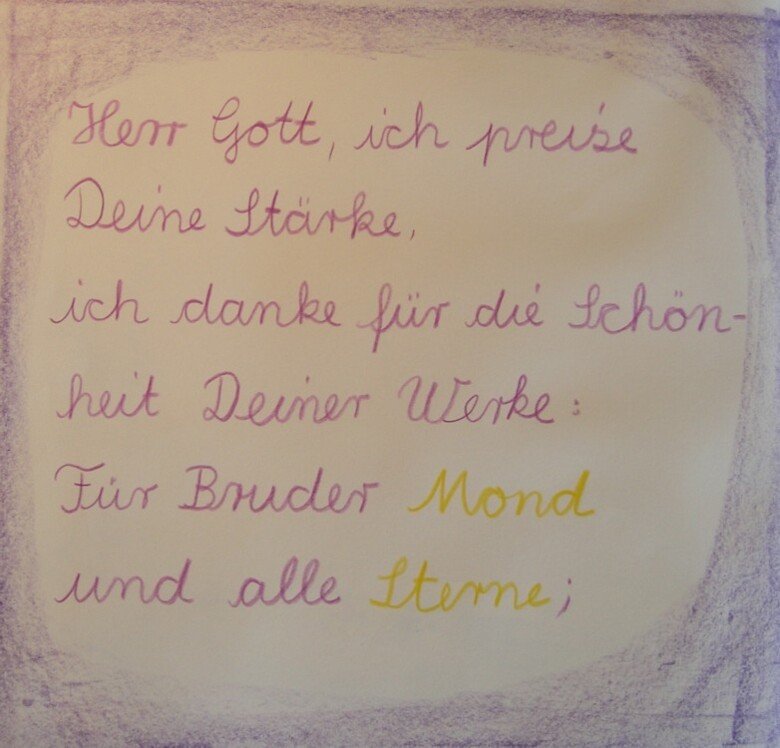 Herr Gott, ich preise
Deine Stärke,
ich danke für die Schön-
heit Deiner Werke:
Für Bruder Mond
und alle Sterne;